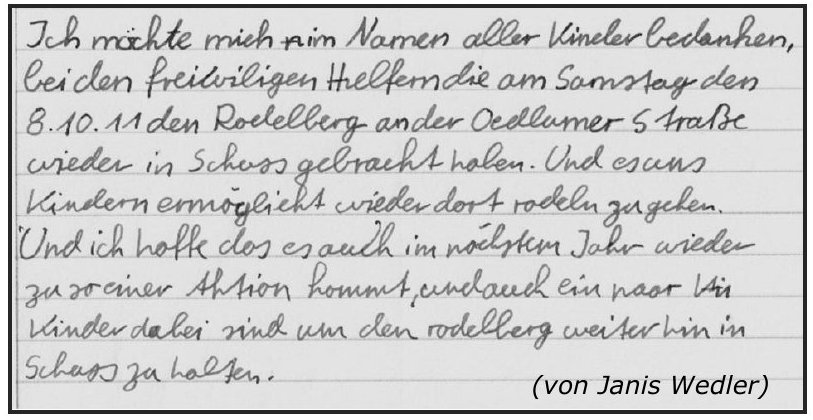 Ich möchte mich im Namen aller Kinder bedanken,
bei den freiwiligen Helfern die am Samstag den
8.10.11 den Rodelberg an der Oedlumer Straße
wieder in Schuss gebracht haben. Und es uns
Kindern ermöglicht wieder dort rodeln zu gehen.
Und ich hoffe das es auch im nächstem Jahr wieder
zu so einer Aktion kommt, und auch ein paar Kin
Kinder dabei sind um den rodelberg weiter hin in
Schuss zu halten.
(von Janis Wedler)